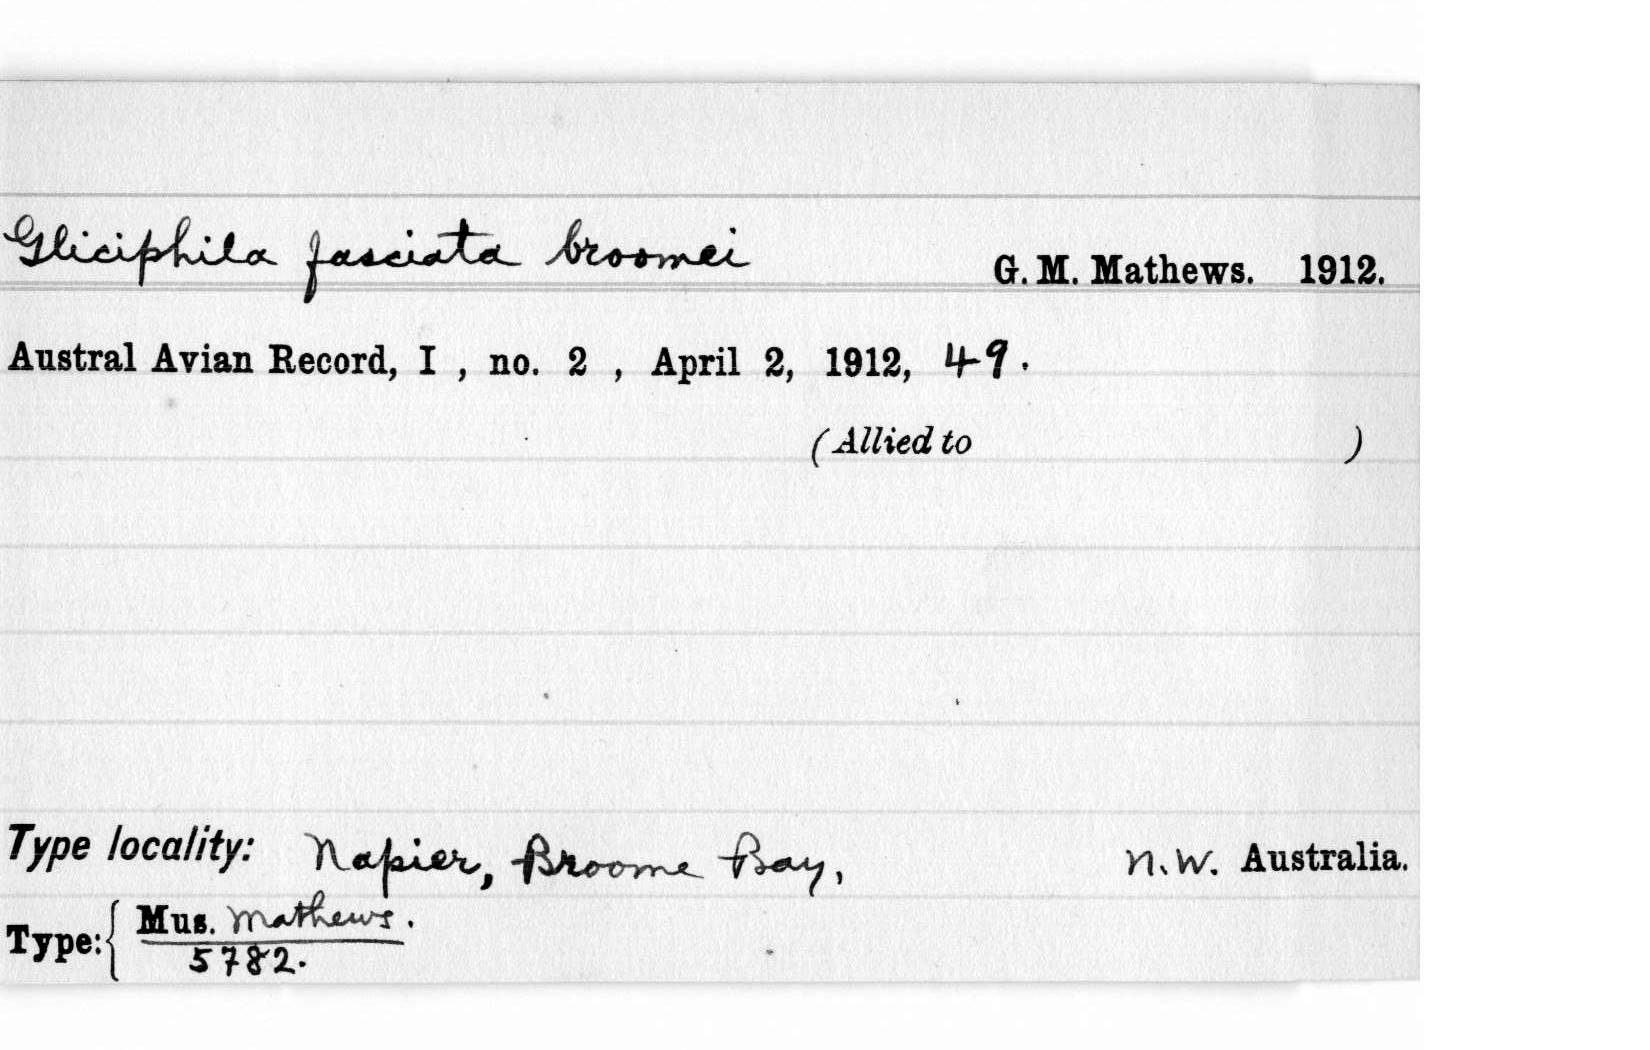 Gliciphila fasciata broomei G. M. Mathews. 1912.
Austral Avian Record, I , no. 2 , April 2, 1912, 49.
(Allied to )
Type locality: Napier, Broome Bay, N.W. Australia.
Type: { Mus. Mathews.
5782.